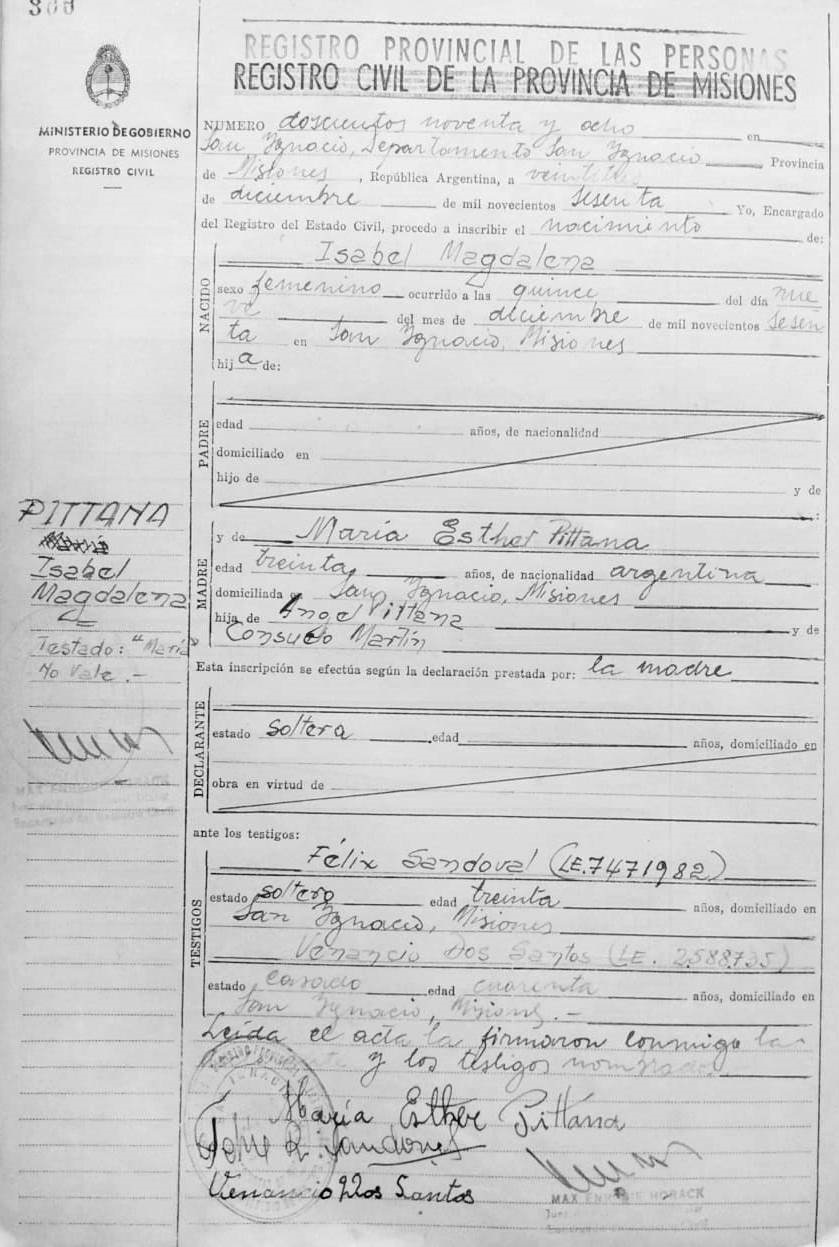 300
REGISTRO PROVINCIAL DE LAS PERSONAS
REGISTRO CIVIL DE LA PROVINCIA DE MISIONES
MINISTERIO DE GOBIERNO
PROVINCIA DE MISIONES
REGISTRO CIVIL
NUMERO doscientos noventa y ocho en
San Ignacio, Departamento San Ignacio Provincia
de Misiones, República Argentina, a veintitres
de diciembre de mil novecientos sesenta Yo, Encargado
del Registro del Estado Civil, procedo a inscribir el nacimiento de:
NACIDO
Isabel Magdalena
sexo femenino ocurrido a las quince del día nue
ve del mes de diciembre de mil novecientos sesen
ta en San Ignacio, Misiones
hij a de:
PADRE
edad años, de nacionalidad
domiciliado en
hijo de y de
:
PITTANA
Isabel
Magdalena
Testado: "María"
No Vale.-
MADRE
y de María Esther Pittana
edad treinta años, de nacionalidad argentina
domiciliada en San Ignacio, Misiones
hija de Angel Pittana y de
Consuelo Martín
Esta inscripción se efectúa según la declaración prestada por: la madre
DECLARANTE
estado soltera edad años, domiciliado en
obra en virtud de
ante los testigos:
TESTIGOS
Félix Sandoval (LE. 7471982)
estado soltero edad treinta años, domiciliado en
San Ignacio, Misiones
Venancio Dos Santos (LE. 2588735)
estado casado edad cuarenta años, domiciliado en
San Ignacio, Misiones.-
Leída el acta la firmaron conmigo la
y los testigos nombrados.-
María Esther Pittana
Venancio Dos Santos
MAX ENRIQUE HORACK